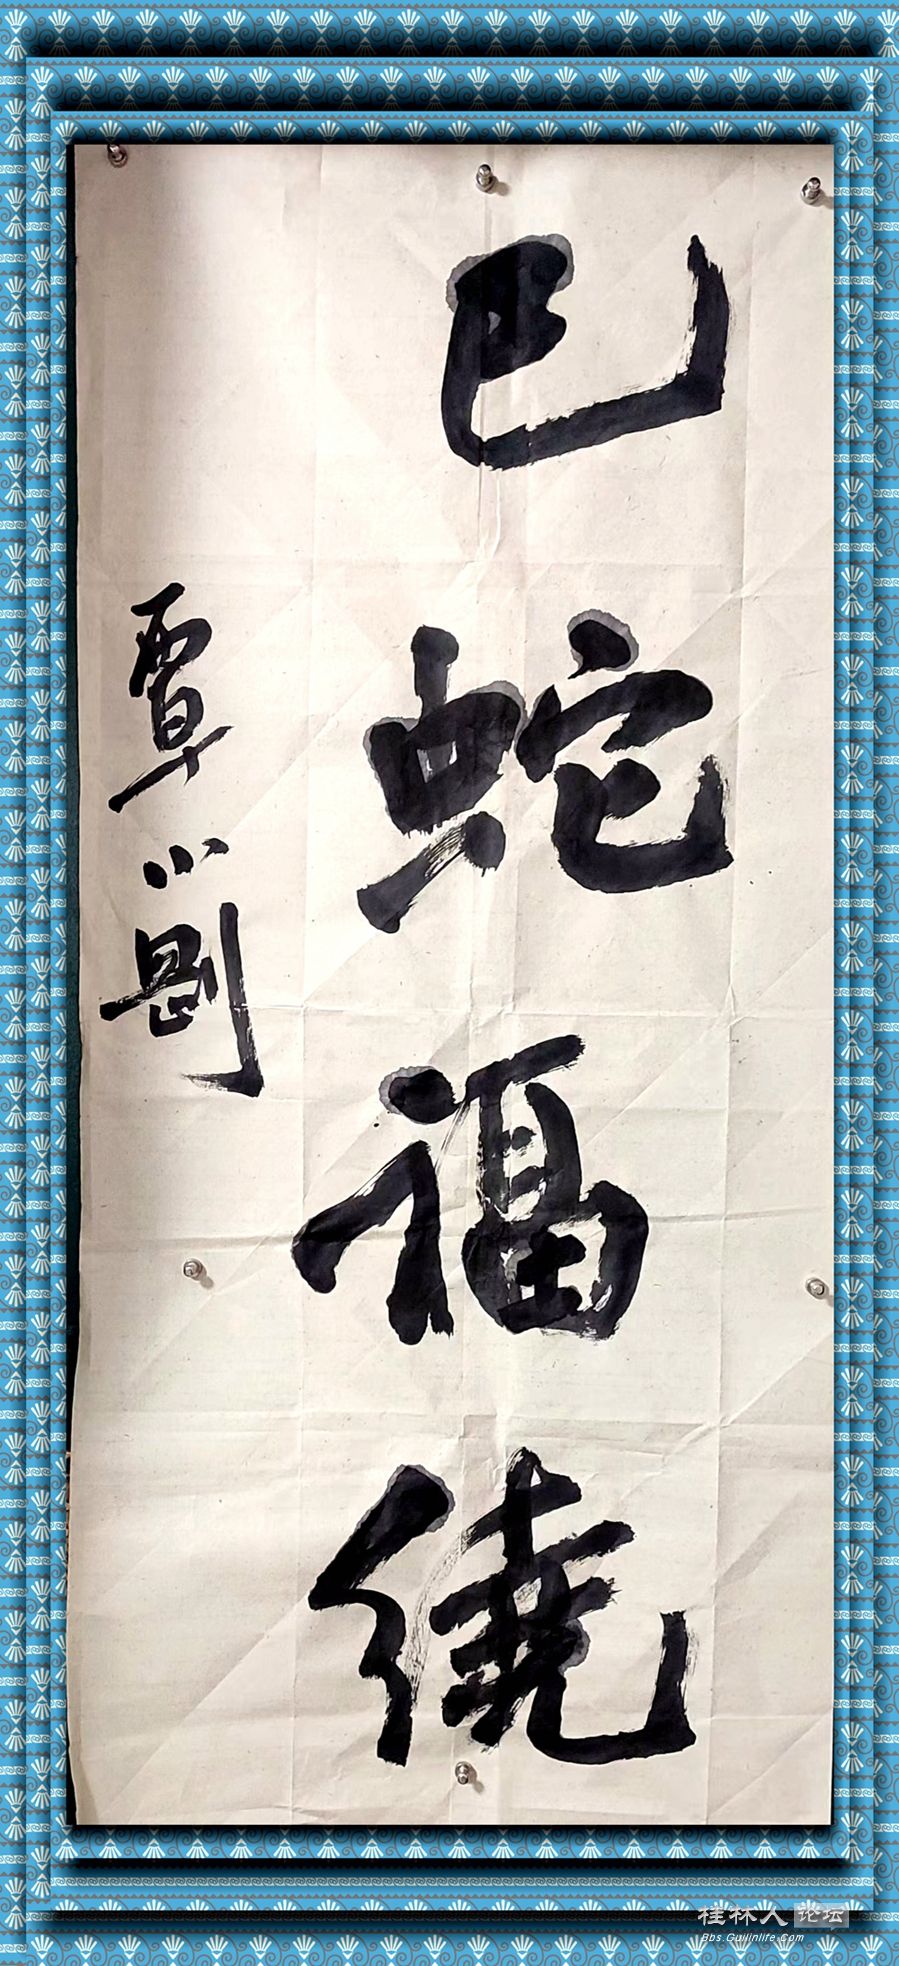 巳蛇福绕
覃小剛
桂林人论坛
Bbs.Guilinlife.Com